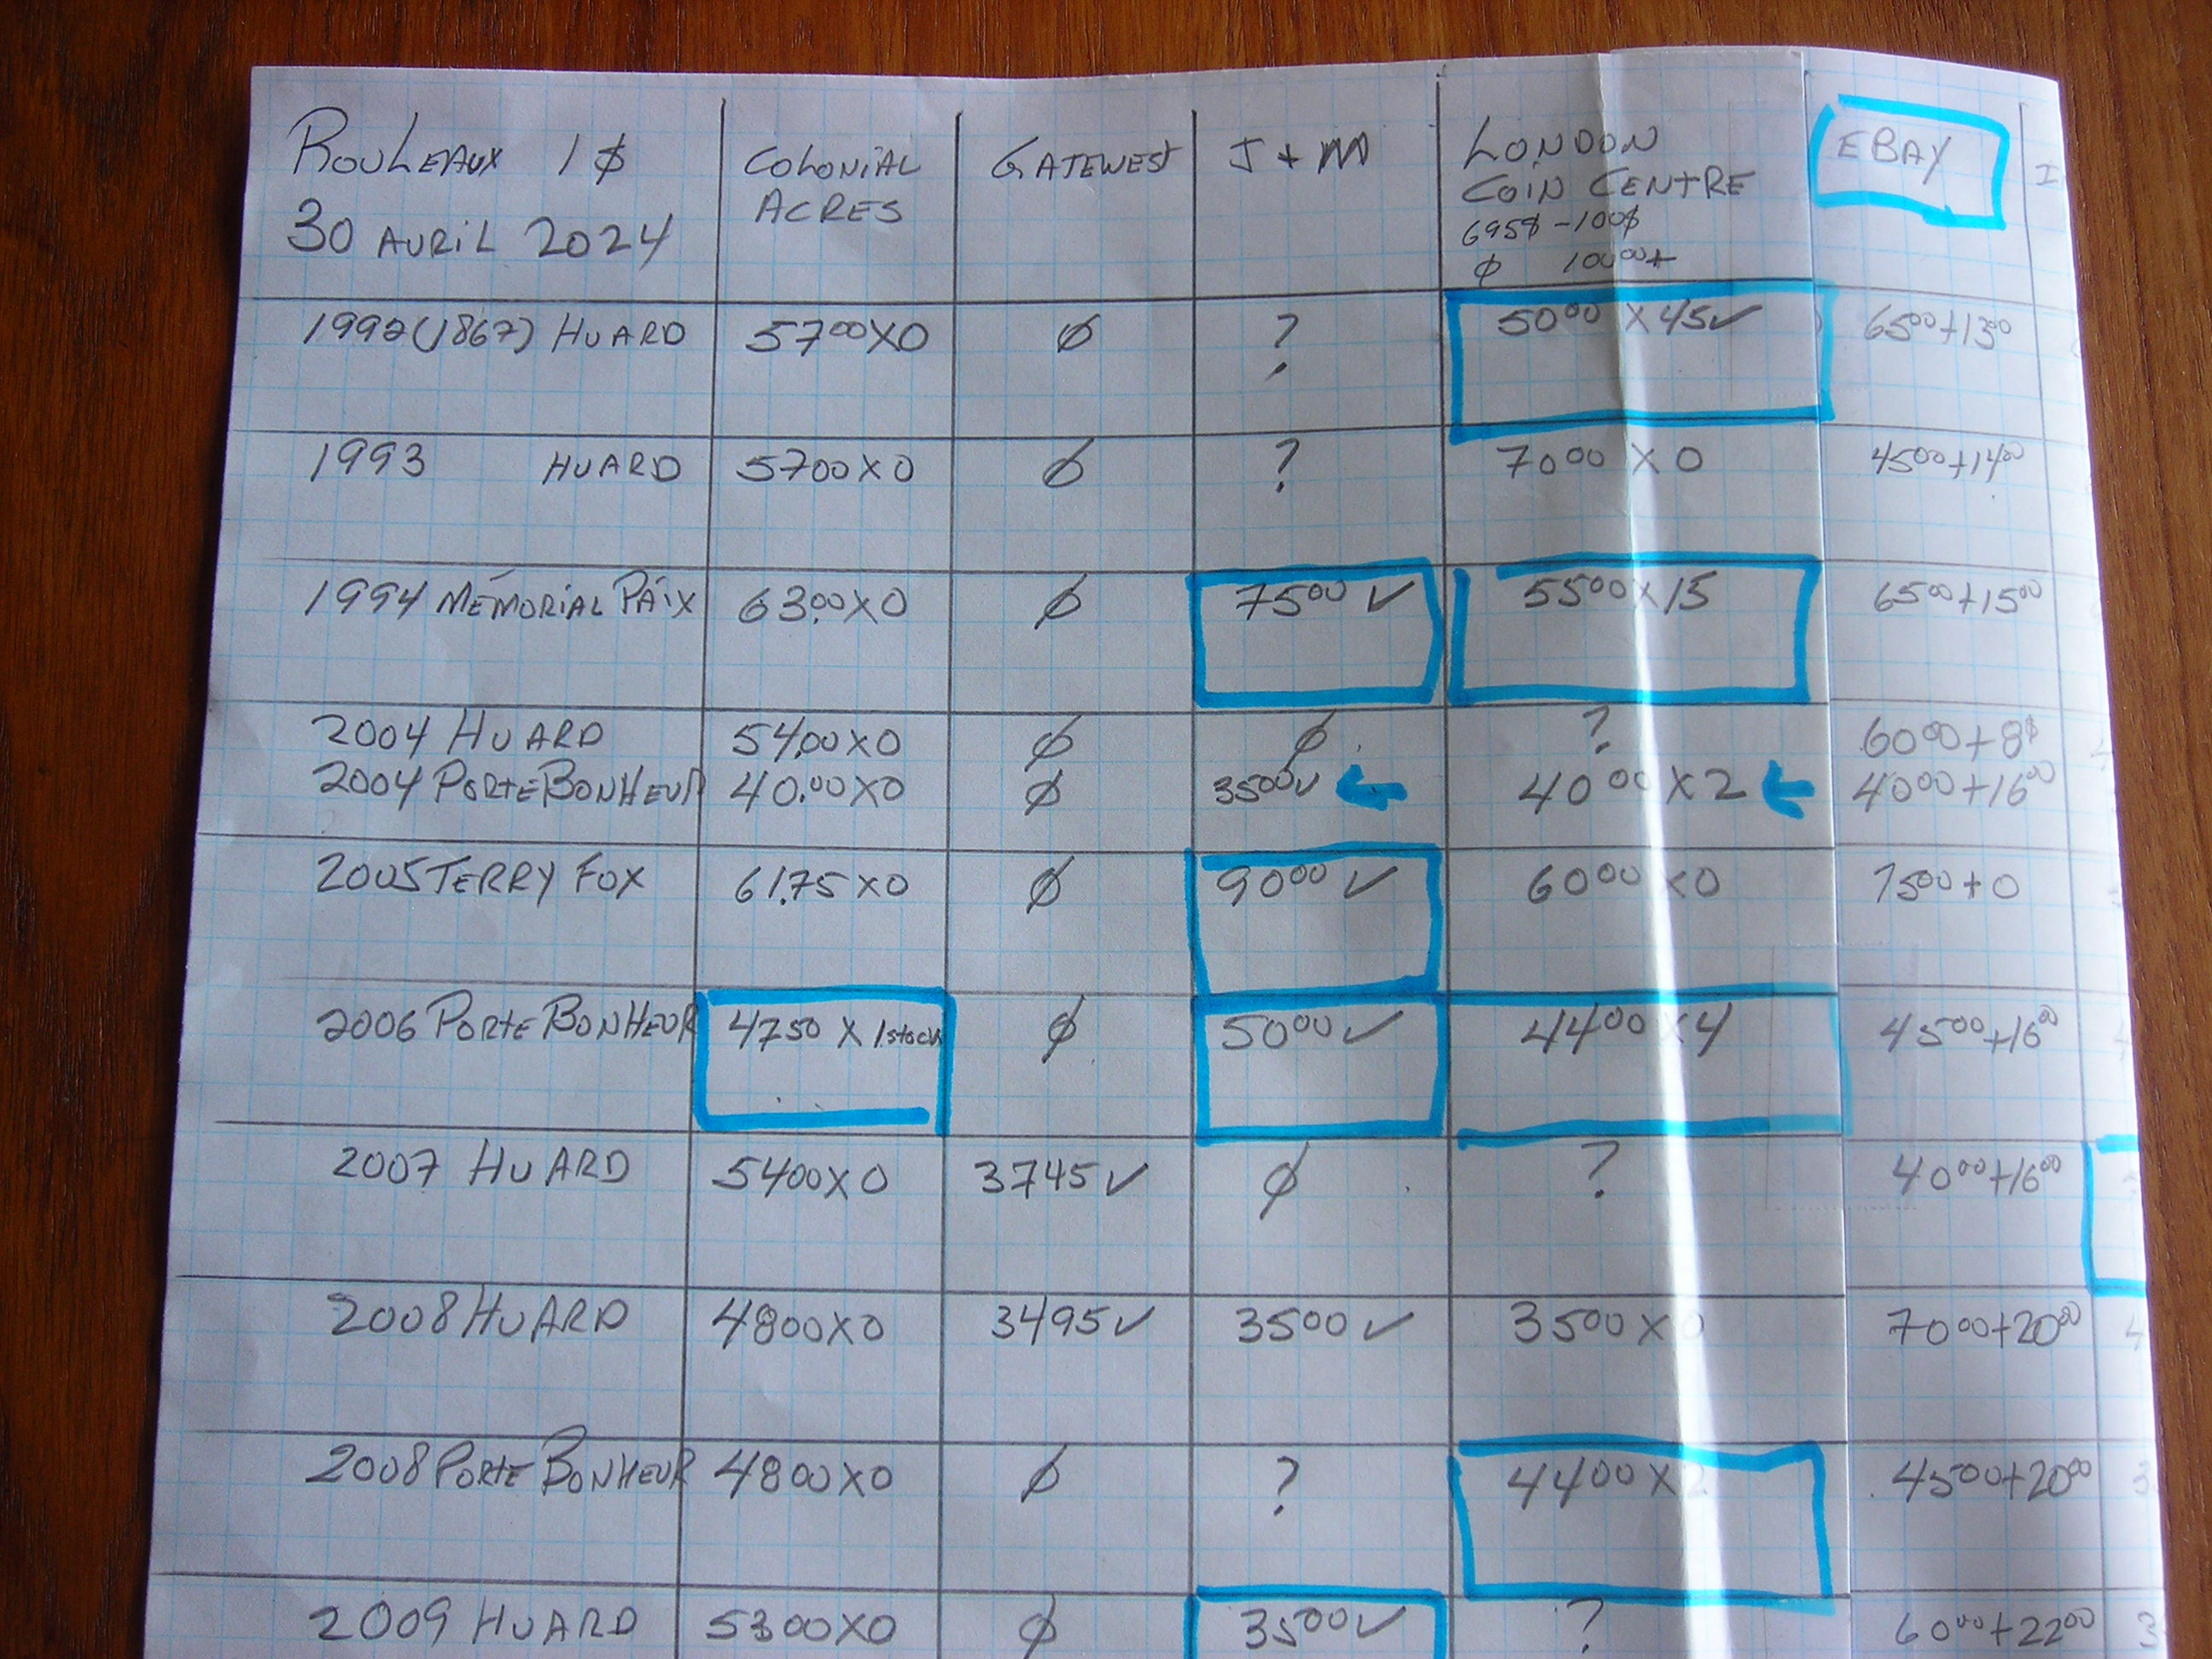 ROULEAUX 1$
30 AVRIL 2024
COLONIAL
ACRES
GATEWEST
J + M
LONDON
COIN CENTRE
695$ - 100$
∅ 100⁰⁰+
EBAY
1992 (1867) HUARD 57⁰⁰X0 ∅ ? 50⁰⁰ X 45✓ 65⁰⁰+13⁰⁰
1993 HUARD 5700X0 ∅ ? 70⁰⁰ X 0 45⁰⁰+14⁰⁰
1994 MÉMORIAL PAIX 63.⁰⁰X0 ∅ 75⁰⁰ ✓ 55⁰⁰ X 15 65⁰⁰+15⁰⁰
2004 HUARD 54.00X0 ∅ ∅ ? 60⁰⁰+8$
2004 PORTE BONHEUR 40.⁰⁰X0 ∅ 35⁰⁰✓ ← 40⁰⁰ X 2 ← 40⁰⁰+16⁰⁰
2005 TERRY FOX 61.75 X0 ∅ 90⁰⁰ ✓ 60⁰⁰ X0 75⁰⁰+0
2006 PORTE BONHEUR 4750 X 1 stock ∅ 50⁰⁰✓ 44⁰⁰ X 4 45⁰⁰+16⁰⁰
2007 HUARD 5400X0 3745✓ ∅ ? 40⁰⁰+16⁰⁰
2008 HUARD 4800X0 3495✓ 35⁰⁰✓ 35⁰⁰ X 0 70⁰⁰+20⁰⁰
2008 PORTE BONHEUR 4800X0 ∅ ? 44⁰⁰ X 2 45⁰⁰+20⁰⁰
2009 HUARD 5300X0 ∅ 35⁰⁰✓ ? 60⁰⁰+22⁰⁰